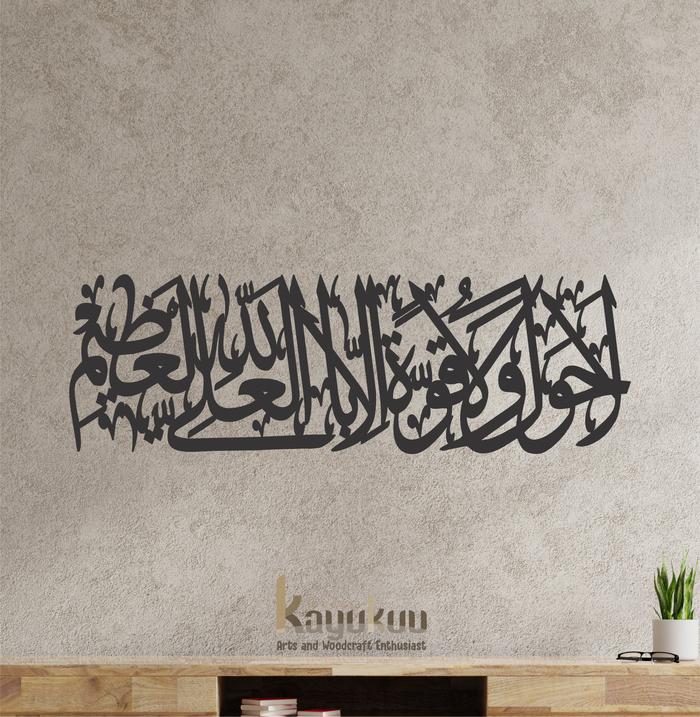 لا حول ولا قوة إلا بالله العلي العظيم
Kayukuu
Arts and Woodcraft Enthusiast